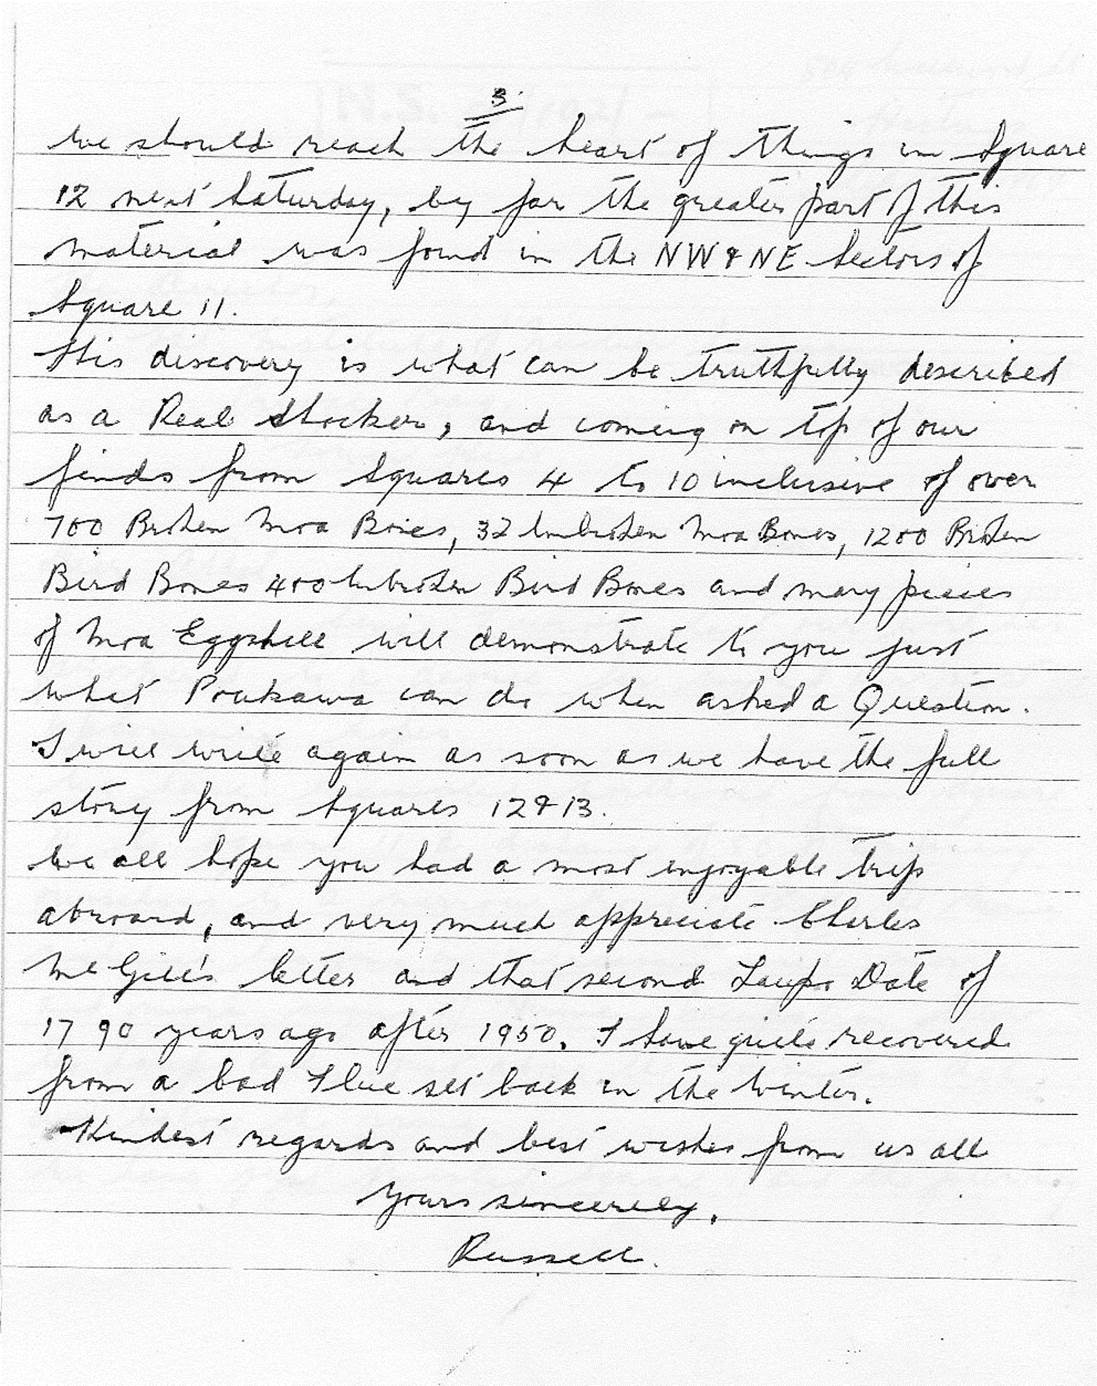 3.
We should reach the heart of things in Square
12 next Saturday, by far the greater part of this
material was found in the NW & NE Sectors of
Square 11.
This discovery is what can be truthfully described
as a Real Shocker, and coming on top of our
finds from Squares 4 to 10 inclusive of over
700 Broken Moa Bones, 32 Unbroken Moa Bones, 1200 Broken
Bird Bones 400 Unbroken Bird Bones and many pieces
of Moa Eggshell will demonstrate to you just
what Poukawa can do when asked a Question.
I will write again as soon as we have the full
story from Squares 12 & 13.
We all hope you had a most enjoyable trip
abroard, and very much appreciate Charles
McGill's letter and that second Taupo Date of
1790 years ago after 1950. I have quite recovered
from a bad Flue set back in the Winter.
Kindest regards and best wishes from us all
Yours sincerely,
Russell.